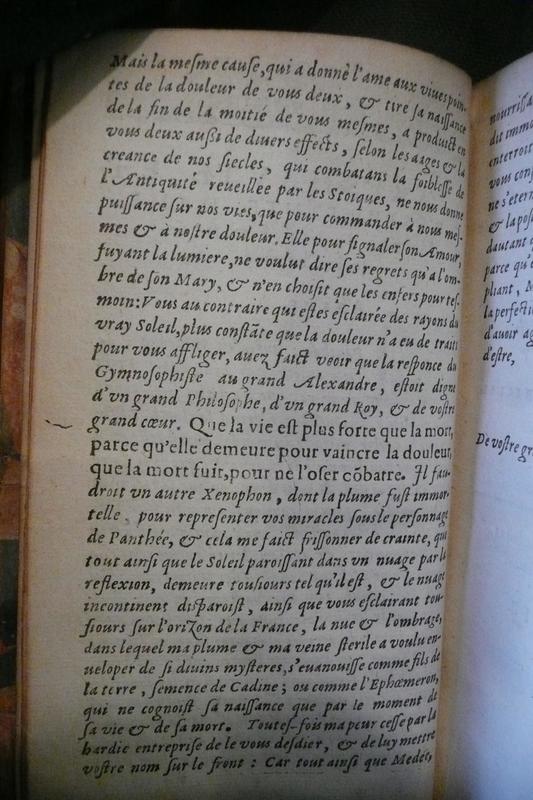 Mais la meſme cauſe, qui a donné l'ame aux viues poin-
tes de la douleur de vous deux, & tire ſa naiſſance
de la fin de la moitié de vous meſmes, a produict en
vous deux auſsi de diuers effects, ſelon les aages & la
creance de nos ſiecles, qui combatans la foibleſſe de
l'Antiquité reueillée par les Stoiques, ne nous donne
puiſſance ſur nos vies, que pour commander à nous meſ-
mes & à noſtre douleur. Elle pour ſignaler ſon Amour,
fuyant la lumiere, ne voulut dire ſes regrets qu'a l'om-
bre de ſon Mary, & n'en choiſit que les enfers pour teſ-
moin: Vous au contraire qui eſtes eſclairée des rayons du
vray Soleil, plus conſtãte que la douleur n'a eu de traits
pour vous affliger, auez faict veoir que la reſponce du
Gymnoſophiſte au grand Alexandre, eſtoit digne
d'vn grand Philoſophe, d'vn grand Roy, & de voſtre
grand cœur. Que la vie eſt plus forte que la mort,
parce qu'elle demeure pour vaincre la douleur,
que la mort fuit, pour ne l'oſer cõbatre. Il fau-
droit vn autre Xenophon, dont la plume fuſt immor-
telle, pour repreſenter vos miracles ſous le perſonnage
de Panthée, & cela me faict friſſonner de crainte, que
tout ainſi que le Soleil paroiſſant dans vn nuage par la
reflexion, demeure touſiours tel qu'il eſt, & le nuage
incontinent diſparoiſt, ainſi que vous eſclairant tou-
ſiours ſur l'oriZon de la France, la nue & l'ombrage,
dans lequel ma plume & ma veine ſterile a voulu en-
ueloper de ſi diuins myſteres, s'euanouiſſe comme fils de
la terre, ſemence de Cadine; ou comme l'Ephœmeron,
qui ne cognoiſt ſa naiſſance que par le moment de
ſa vie & de ſa mort. Toutes-fois ma peur ceſſe par la
hardie entrepriſe de le vous deſdier, & de luy mettre
voſtre nom ſur le front : Car tout ainſi que Medée,
nourriſſa
dit immo
enterroit
vous conſ
ne s'eterni
& la poſt
dautant
parce qu'
pliant, M
la perfecti
d'auoir ag
d'eſtre,
De voſtre gr